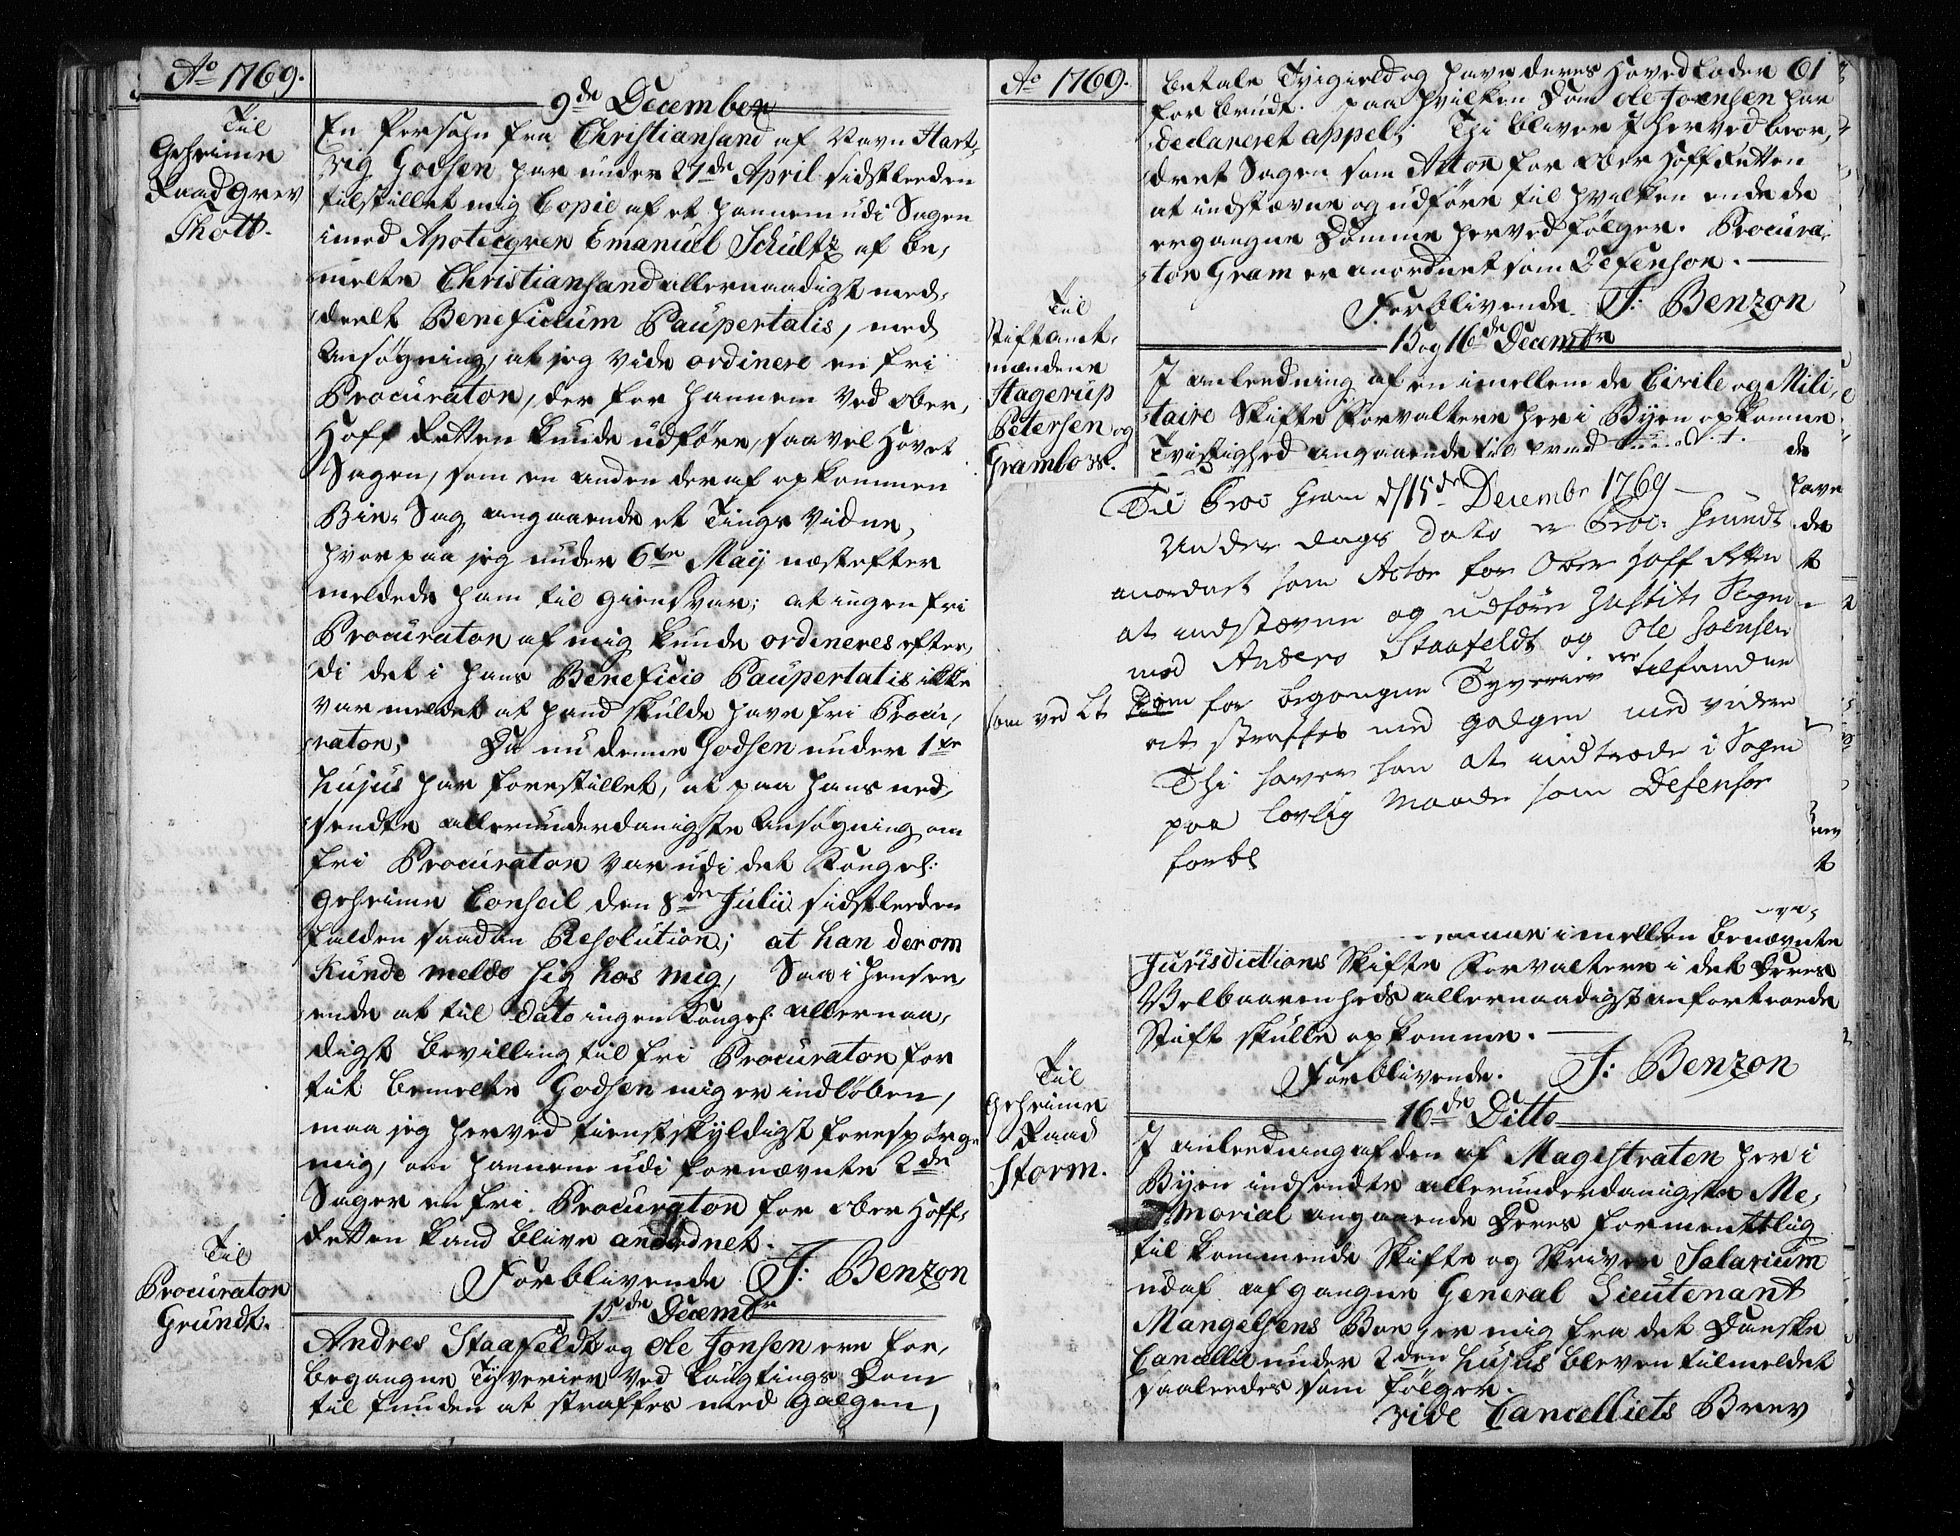 Ao 1769.
9de December
Til
Geheime
Raad Grev
Thott.
En Persohn fra Christiansand af Navn Hart-
vig Godsen har under 27de April sidstleeden
tilstillet mig Copie af et hannem udi Sagen
imod Apotecqren Emanuel Schultz af be-
melte Christiansand allernaadigst med-
deelt Beneficium Paupertatis, med
Ansøgning, at jeg vide ordinere en fri
Procurator, der for hannem ved Ober-
Hoff Retten kunde udføre, saavel Hovet
Sagen, som en anden deraf opkommen
Bie-Sag angaaende et Tings Vidne,
hvorpaa jeg under 6te Maij næstefter
meldede ham til giensvar; at ingen fri
Procurator af mig kunde ordineres efter-
di det i hans Beneficio Paupertatis ikke
var meldet at hand skulde have fri Procu-
rator; Da nu denne Godsen under 1te
hujus har forestillet, at paa hans ned-
sendte allerunderdanigste Ansøgning om
fri Procurator var udi det Kongel:
Geheime Conseil den 8de Julii sidstleeden
falden saadan Resolution; at han derom
kunde melde sig hos mig, Saa i henseen-
ende at til dato ingen Kongel: allernaa-
digst bevilling til fri Procurator for
tit bemelte Godsen mig er indløben,
maa jeg herved tienstskyldigst forespørge
mig, om hannem udi fornævnte 2de
Sager en fri Procurator for Ober Hoff-
Retten kand blive anordnet.
Forblivende J: Benzon
15de Decembr
Til
Procurator
Grundt.
Andres Staafeldt og Ole Jonsen ere for
begangne Tyverier ved Laugtings Dom
til funden at straffes med galgen,
Ao 1769.
61
betale Tvigield og have deres Hoved Lader
for brudt. paa hvilken Dom Ole Jorensen har
declareret appel; Thi bliver I herved beor-
dret Sagen som Actor for Ober Hoff Retten
at indstævne og udføre til hvilken ende de
ergangne Domme herved følger. Procura-
tor Gram er anordnet som Defensor.
Forblivende J: Benzon
15 og 16de Decembr
Til
Stiftamt-
mændene
Hagerup
Petersen og
Grambow.
I anleedning af en imellem de Civile og Mili-
taire Skifte Forvaltere her i Byen opkomne
Tvistighed angaaende
Til Proc Gram d/15de Decembr 1769
Under dags dato er Proc: Grundt
anordnet som Actor for Ober Hoff Retten
at indstævne og udføre Justits Sagen
mod Anders Staafeldt og Ole Soensen
som ved Lt Dom for begangne Tyverier ere tilfundne
at straffes med galgen med videre
Thi haver han at indtræde i Sagen
paa lovlig Maade som Defensor
forbl
imellem benævnte
Jurisdictions Skifte Forvaltere i det Deres
Velbaarenheds allernaadigst anfortroede
Stift skulle opkomme.
Forblivende. J: Benzon
16de Ditto
Til
Geheime
Raad
Storm.
I anleedning af den af Magistraten her i
Byen indsendte allerunderdanigste Me-
morial angaaende Deres formenttlig
til kommende Skifte og Skriver Salarium
udaf afgangne General Lieutenant
Mangelsens Boe, er mig fra det Danske
Cancellie under 2den hujus bleven tilmeldet
saaledes som følger.
vide Cancelliets Brev